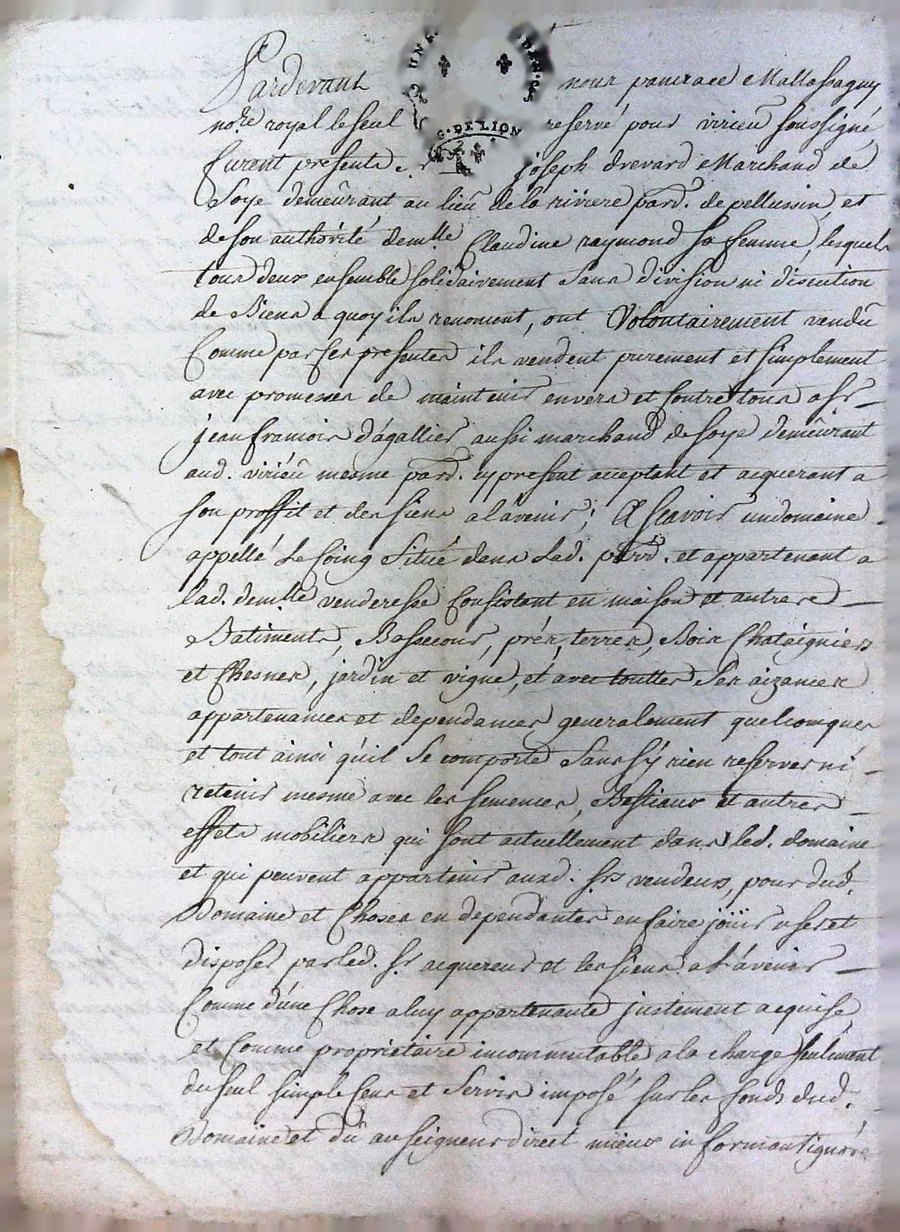 Pardevant nous pancrace Mallassaguy
nore royal le seul reservé pour virieu soussigné
furent presents Joseph drevard Marchand de
Soye demeurant au lieu de la riviere parr. de pellussin, et
de son authorité demlle Claudine raymond sa femme, lesquels
tous deux ensemble solidairement sans division ni discution
de Biens a quoy ils renoncent, ont Volontairement vendû
Comme par ses presentes ils vendent purement et simplement
avec promesses de maintenir envers et Contre tous a sr
jean francois d'agallier aussi marchand de soye demeurant
aud. virieû mesme parr. icy present acceptant et acquerant a
son proffit et des siens a l'avenir; A Scavoir un domaine
appellé Le Coing Situé dans Lad. parr. et appartenant a
lad. demlle venderesse Consistant en maison et autres
Batiments, Bassecour, prés, terres, Bois Chataigniers
et Chesnes, jardin et vigne, et avec touttes Ses aizances
appartenances et dependances generalement quelconques
et tout ainsi qu'il Se comporte Sans s'y rien reserver ni
retenir mesme avec les semences, Bestiaux et autres
effets mobiliers qui sont actuellement dans led. domaine
et qui peuvent appartenir auxd. srs vendeurs, pour dud.
Domaine et Choses en dependantes en faire joüir user et
disposer par led. sr acquereur et les siens a l'avenir
Comme d'une Chose a luy appartenante justement acquise
et Comme proprietaire incommutable a la charge seulement
du seul simple Cens et Servis imposé sur les fonds dud.
Domaine et dû au seigneur direct mieux informant ignoré
G. DE LION